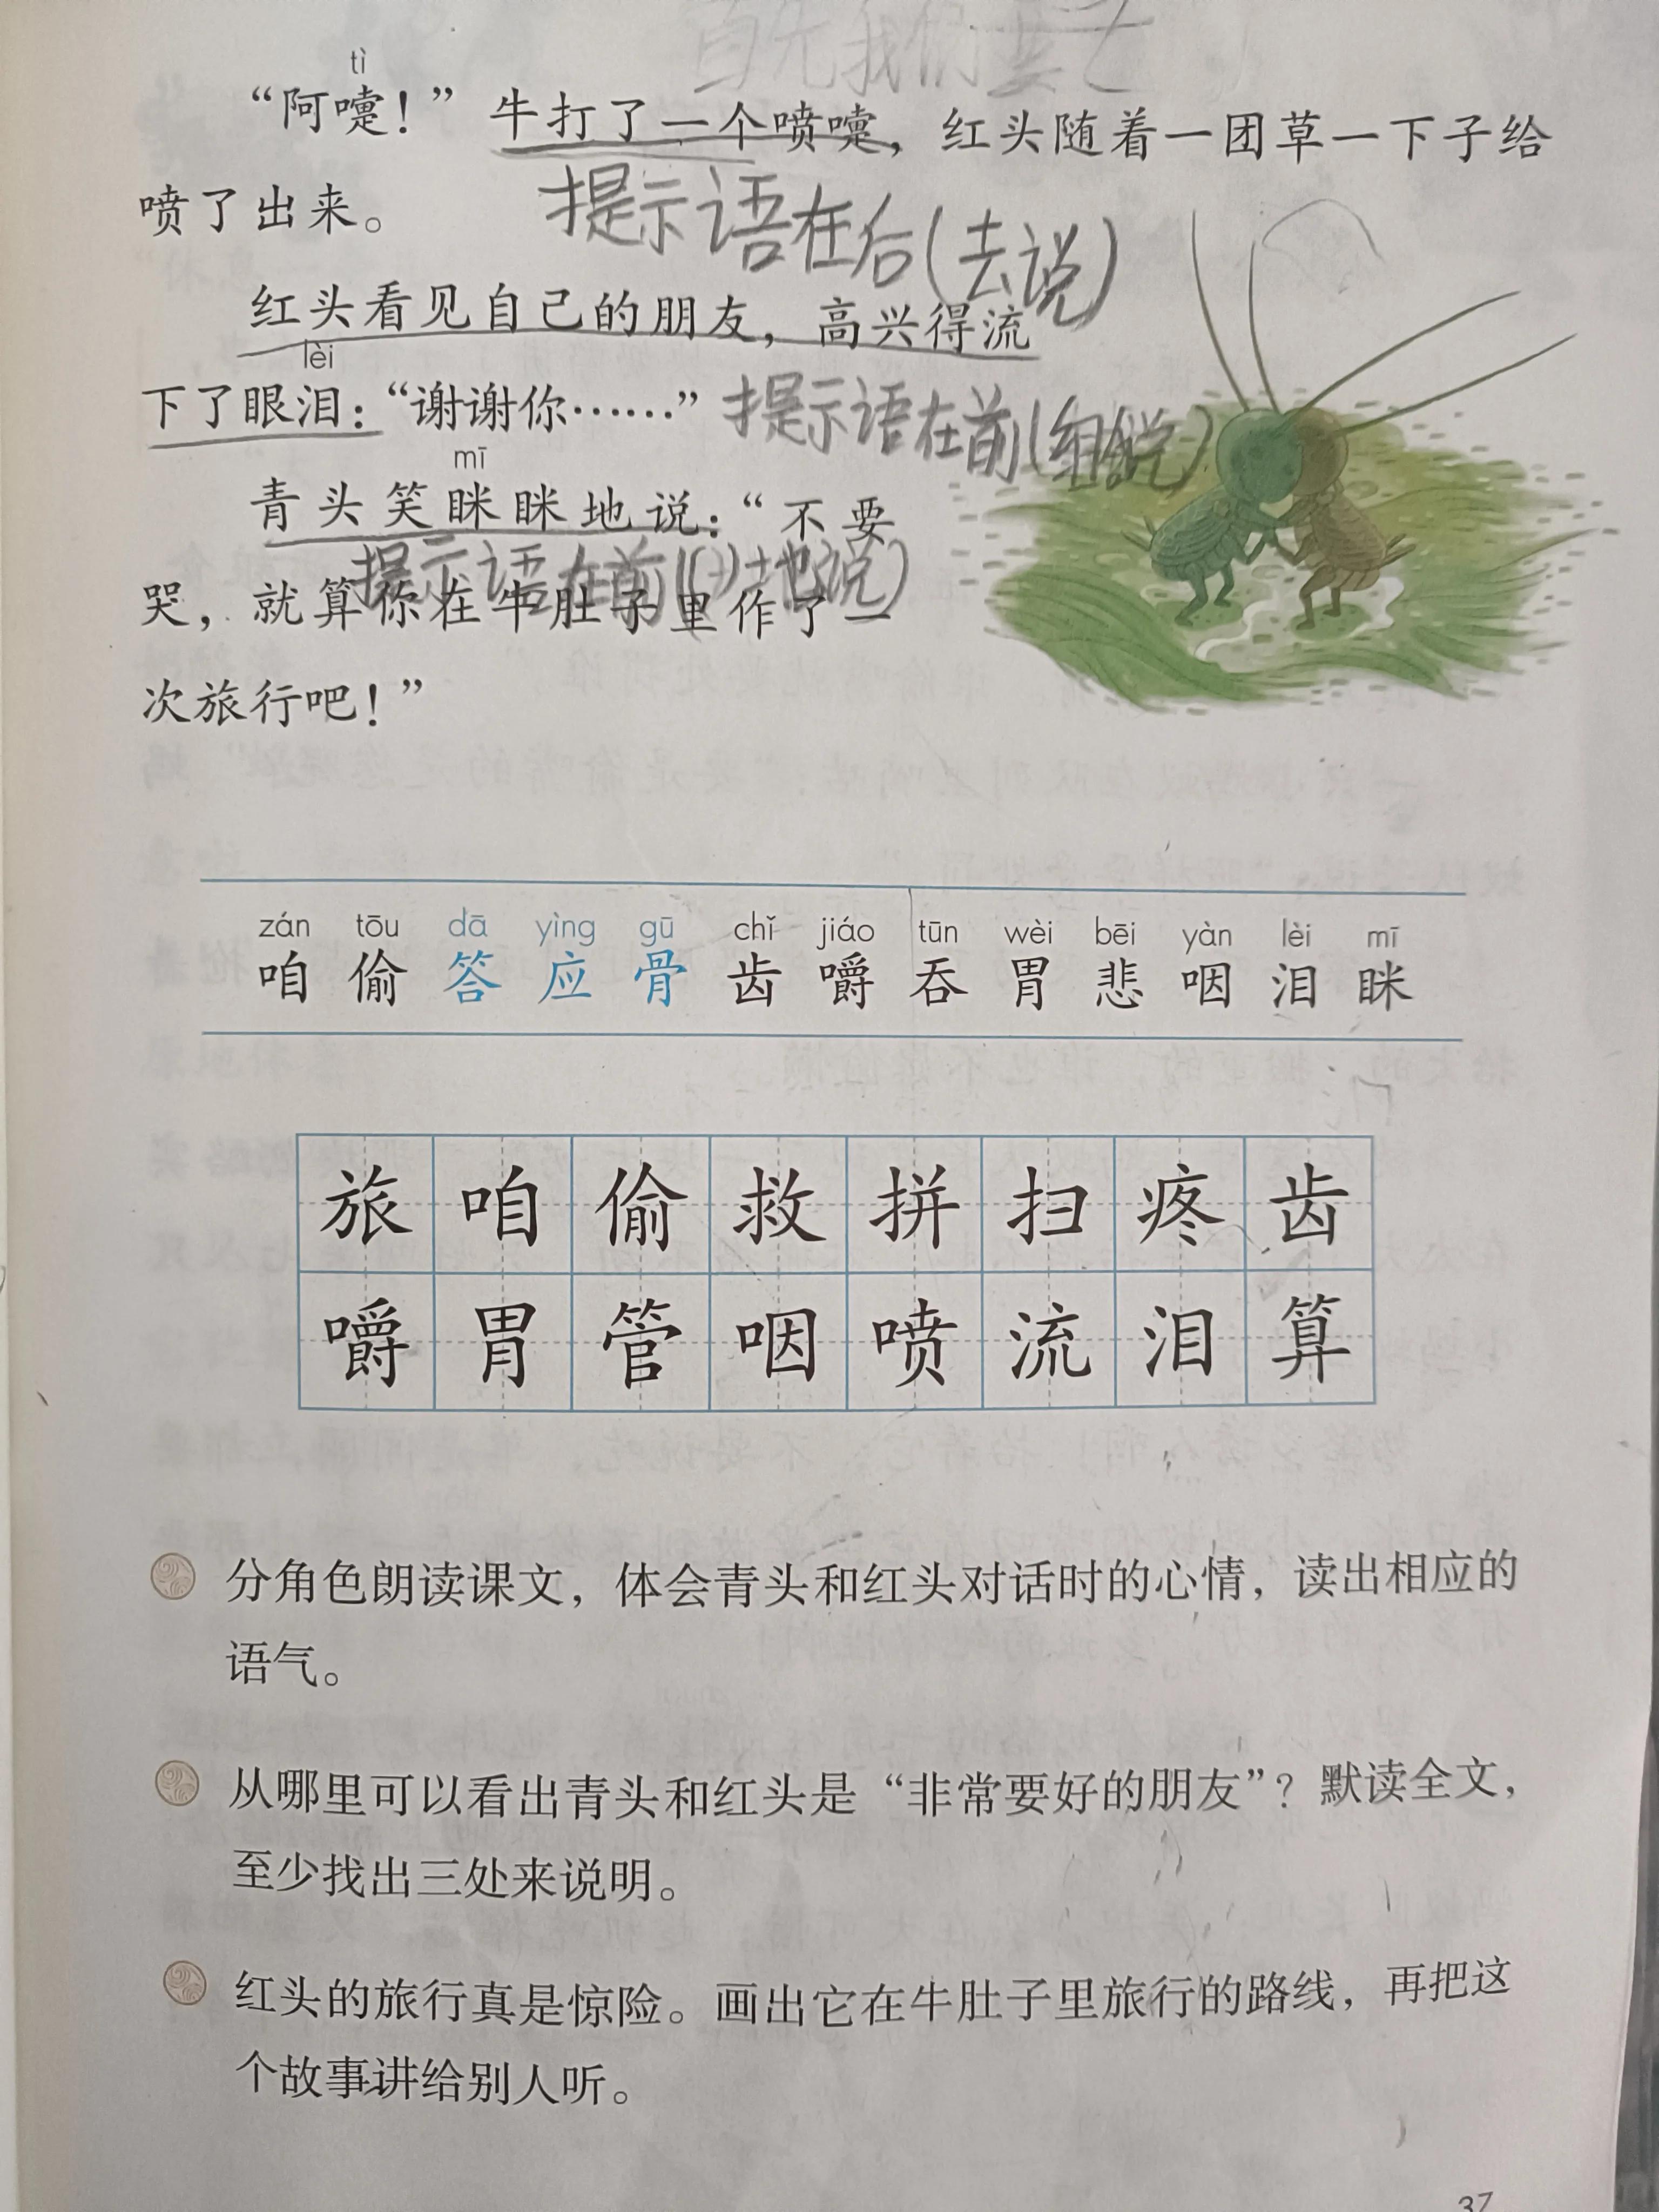 首先我们要
tì
“阿嚏！”牛打了一个喷嚏，红头随着一团草一下子给
喷了出来。
提示语在后(去说)
红头看见自己的朋友，高兴得流
lèi
下了眼泪：“谢谢你……”
提示语在前(
mī
青头笑眯眯地说：“不要
提示语在前(地说)
哭，就算你在牛肚子里作了一
次旅行吧！”
zán tōu dā yìng gū chǐ jiáo tūn wèi bēi yàn lèi mī
咱 偷 答 应 骨 齿 嚼 吞 胃 悲 咽 泪 眯
旅 咱 偷 救 拼 扫 疼 齿
嚼 胃 管 咽 喷 流 泪 算
分角色朗读课文，体会青头和红头对话时的心情，读出相应的
语气。
从哪里可以看出青头和红头是“非常要好的朋友”？默读全文，
至少找出三处来说明。
红头的旅行真是惊险。画出它在牛肚子里旅行的路线，再把这
个故事讲给别人听。
37